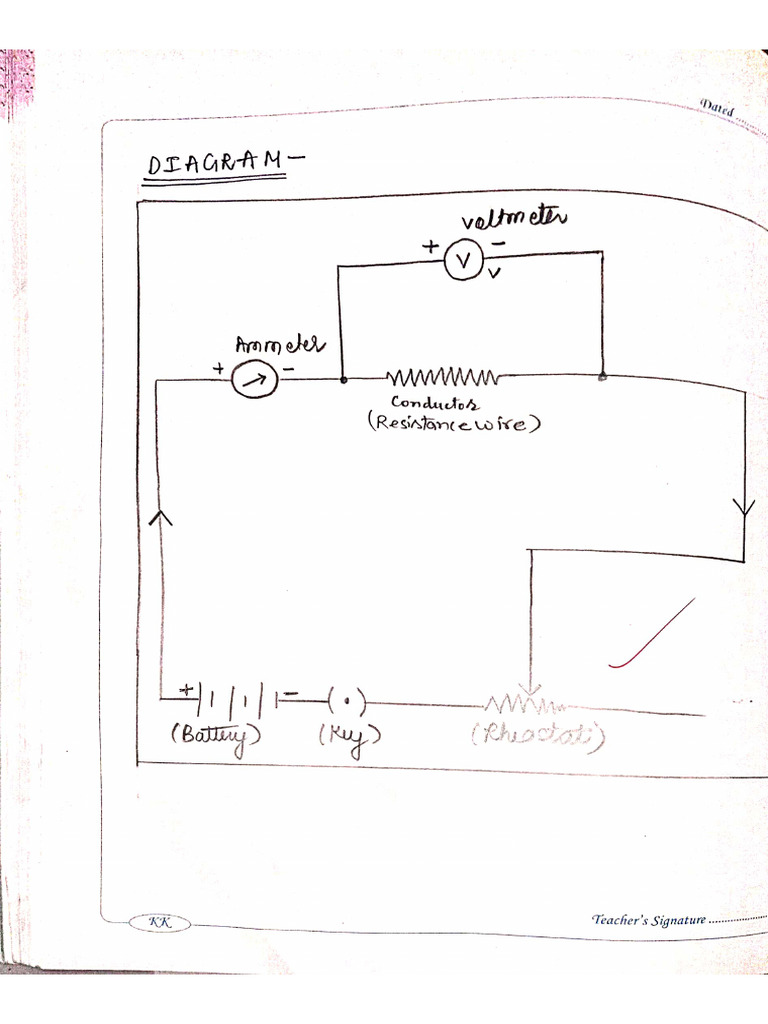 Dated ..........
DIAGRAM –
Voltmeter
+ –
V
V
Ammeter
+ –
Conductor
(Resistance wire)
+ –
(.)
(Battery) (Key) (Rheostat)
KK
Teacher's Signature ....................